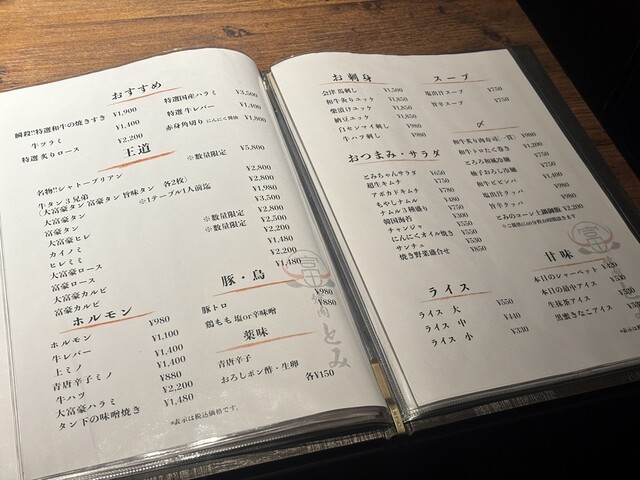 おすすめ
瞬殺!!特選和牛の焼きすき ¥1,900
牛ツラミ ¥1,400
特選炙りロース ¥2,200
特選国産ハラミ ¥3,500
特選牛レバー ¥1,400
赤身角切り にんにく醤油 ¥1,800
王道
名物!!シャトーブリアン ※数量限定 ¥5,800
牛タン3兄弟 ¥2,800
(大富豪タン 富豪タン 旨味タン 各2枚)
大富豪タン ※1テーブル1人前迄 ¥2,800
富豪タン ¥1,980
大富豪ヒレ ※数量限定 ¥3,500
カイノミ ※数量限定 ¥2,800
ヒレミミ ¥2,500
大富豪ロース ¥2,200
富豪ロース ¥1,480
大富豪カルビ ¥2,200
富豪カルビ ¥1,480
ホルモン
ホルモン ¥980
牛レバー ¥1,100
上ミノ ¥1,400
青唐辛子ミノ ¥1,400
牛ハツ ¥880
大富豪ハラミ ¥2,200
タン下の味噌焼き ¥1,480
豚・鳥
豚トロ ¥980
鶏もも 塩or辛味噌 ¥880
薬味
青唐辛子
おろしポン酢・生卵 各¥150
*表示は税込価格です。
お刺身
会津馬刺し ¥1,500
和牛炙りユッケ ¥1,850
柴漬けユッケ ¥1,850
納豆ユッケ ¥1,850
白センマイ刺し ¥980
牛ハツ刺し ¥980
おつまみ・サラダ
とみちゃんサラダ ¥650
超生キムチ ¥750
アボカドキムチ ¥780
もやしナムル ¥480
ナムル3種盛り ¥750
韓国海苔 ¥300
チャンジャ ¥550
にんにくオイル焼き ¥550
サンチュ ¥530
焼き野菜盛合せ ¥850
ライス
ライス 大 ¥550
ライス 中 ¥440
ライス 小 ¥330
スープ
塩出汁スープ ¥750
旨辛スープ ¥750
〆
和牛炙り肉寿司(一貫) ¥980
和牛トロたく巻き ¥1,200
とろろ和風冷麺
柚子おろし冷麺
和牛ビビンバ
塩出汁クッパ
旨辛クッパ ¥980
とみのユーシン土鍋御飯 ¥2,200
甘味
本日のシャーベット
本日の最中アイス
生抹茶アイス
黒蜜きなこアイス
富
とみ